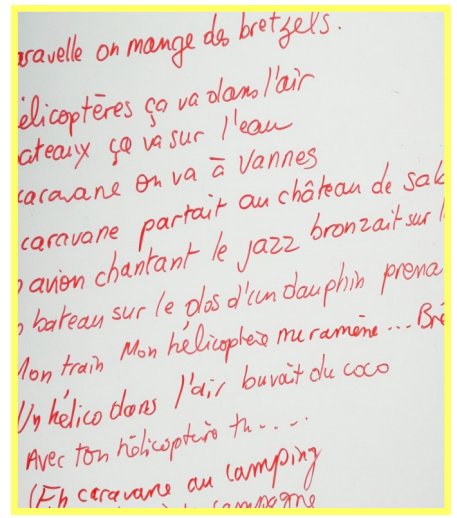 aravelle on mange des bretzels.
élicoptères ça va dans l'air
ateaux ça va sur l'eau
caravane on va à Vannes
caravane partait au château de sab
avion chantant le jazz bronzait sur l
bateau sur le dos d'un dauphin prena
Mon train Mon hélicoptère me ramène... Bre
Un hélico dans l'air buvait du coco
Avec ton hélicoptère tu.....
(En caravane au camping
campagne